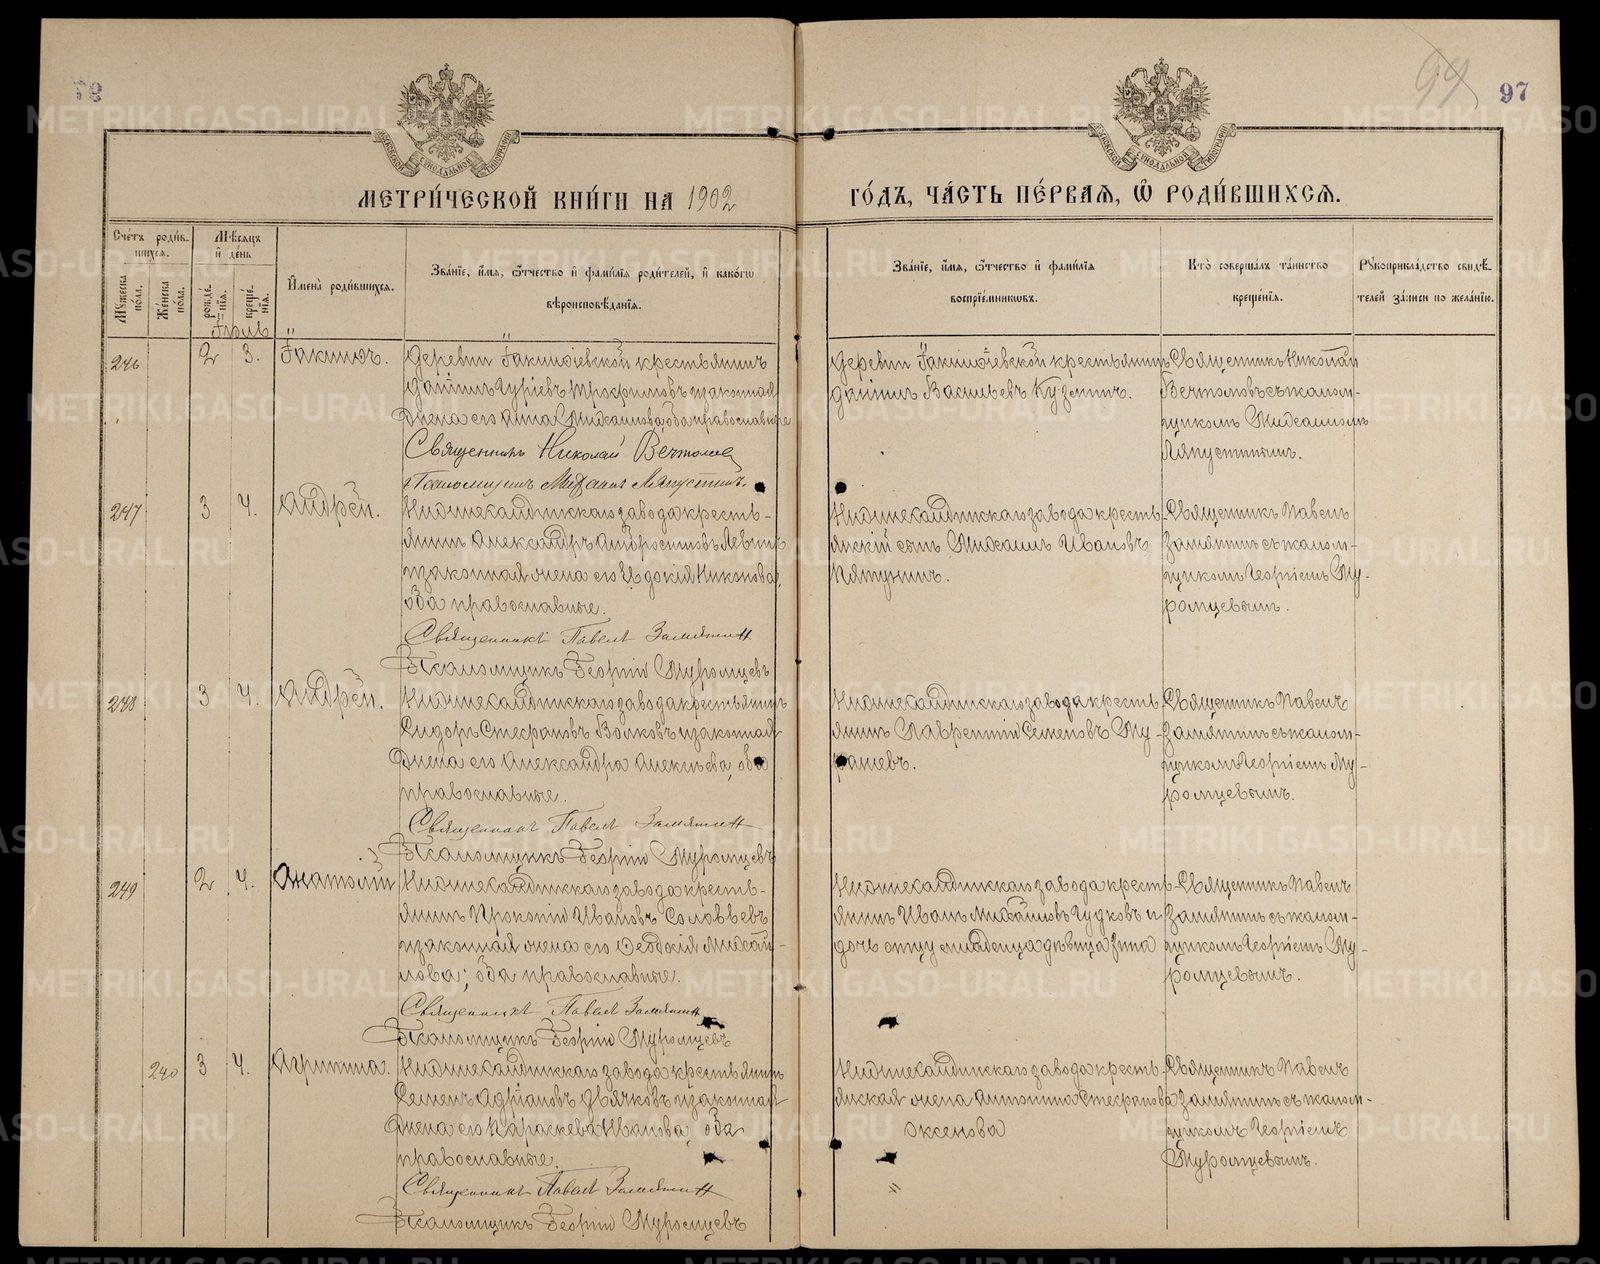 97
МЕТРИ́ЧЕСКОЙ КНИ́ГИ НА 1902
ГО́ДЪ, ЧА́СТЬ ПЕ́РВАѦ, Ѡ҆ РОДИ́ВШИХСѦ.
Сче́тъ роди́в-
шихсѧ.
Мѹ́жеска по́ла.
Же́нска по́ла.
Мѣ́сѧцъ
и҆ де́нь
рожде́нїѧ.
креще́нїѧ.
И҆мена̀ роди́вшихсѧ.
Зва́нїе, и҆́мѧ, ѻ҆́тчество и҆ фами́лїѧ роди́телей, и҆ како́гѡ
вѣроисповѣ́данїѧ.
Зва́нїе, и҆́мѧ, ѻ҆́тчество и҆ фами́лїѧ
воспрїе́мникѡвъ.
Кто̀ соверша́лъ та́инство
креще́нїѧ.
Рѹкоприкла́дство свидѣ́-
телей за́писи по жела́нїю.
246
2
3.
деревни крестьянинъ
законная
жена его Анна Михаилова, оба православные
Священникъ Николай
Псаломщикъ Михаилъ Ляпустинъ.
деревни крестьянинъ
Даніилъ Васильевъ Кузминъ.
Священникъ Николай
съ псалом-
щикомъ Михаиломъ
Ляпустинымъ.
247
3
4.
Андрей.
завода кресть-
янинъ Александръ Левинъ
и законная жена его Евдокія Никонова,
оба православные.
Священникъ Павелъ Замятин
Псаломщикъ Георгій Муромцевъ
завода кресть-
янскій сынъ Михаилъ Ивановъ
Пятунинъ.
Священникъ Павелъ
Замятинъ съ псалом-
щикомъ Георгіемъ Му-
ромцевымъ.
248
3
4.
Андрей.
завода крестьянинъ
Сидоръ Стефановъ Волковъ и законная
жена его Александра Алексѣева, оба
православные.
Священникъ Павелъ Замятин
Псаломщикъ Георгій Муромцевъ
завода кресть-
янинъ Лаврентій Семеновъ Му-
рашевъ.
Священникъ Павелъ
Замятинъ съ псалом-
щикомъ Георгіемъ Му-
ромцевымъ.
249
2
4.
Анатолій
завода кресть-
янинъ Прокопій Ивановъ Соловьевъ
и законная жена его Ѳеодосія Михай-
лова; оба православные.
Священникъ Павелъ Замятин
Псаломщикъ Георгій Муромцевъ
завода кресть-
янинъ Иванъ Михайловъ Чудковъ и
дочь отцу младенца дѣвица Анна
Священникъ Павелъ
Замятинъ съ псалом-
щикомъ Георгіемъ Му-
ромцевымъ.
240
3
4.
Агрипина.
завода крестьянинъ
Семенъ Адріановъ Дьячковъ и законная
жена его Параскева Иванова, оба
православные.
Священникъ Павелъ Замятин
Псаломщикъ Георгій Муромцевъ
завода кресть-
янская жена Антонина Стефанова
Оксенова
Священникъ Павелъ
Замятинъ съ псалом-
щикомъ Георгіемъ
Муромцевымъ.
METRIKI.GASO-URAL.RU